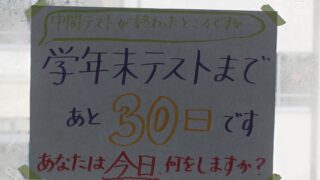 中間テストが終わったところですが…
学年末テストまで
あと30日です
あなたは今日、何をしますか?